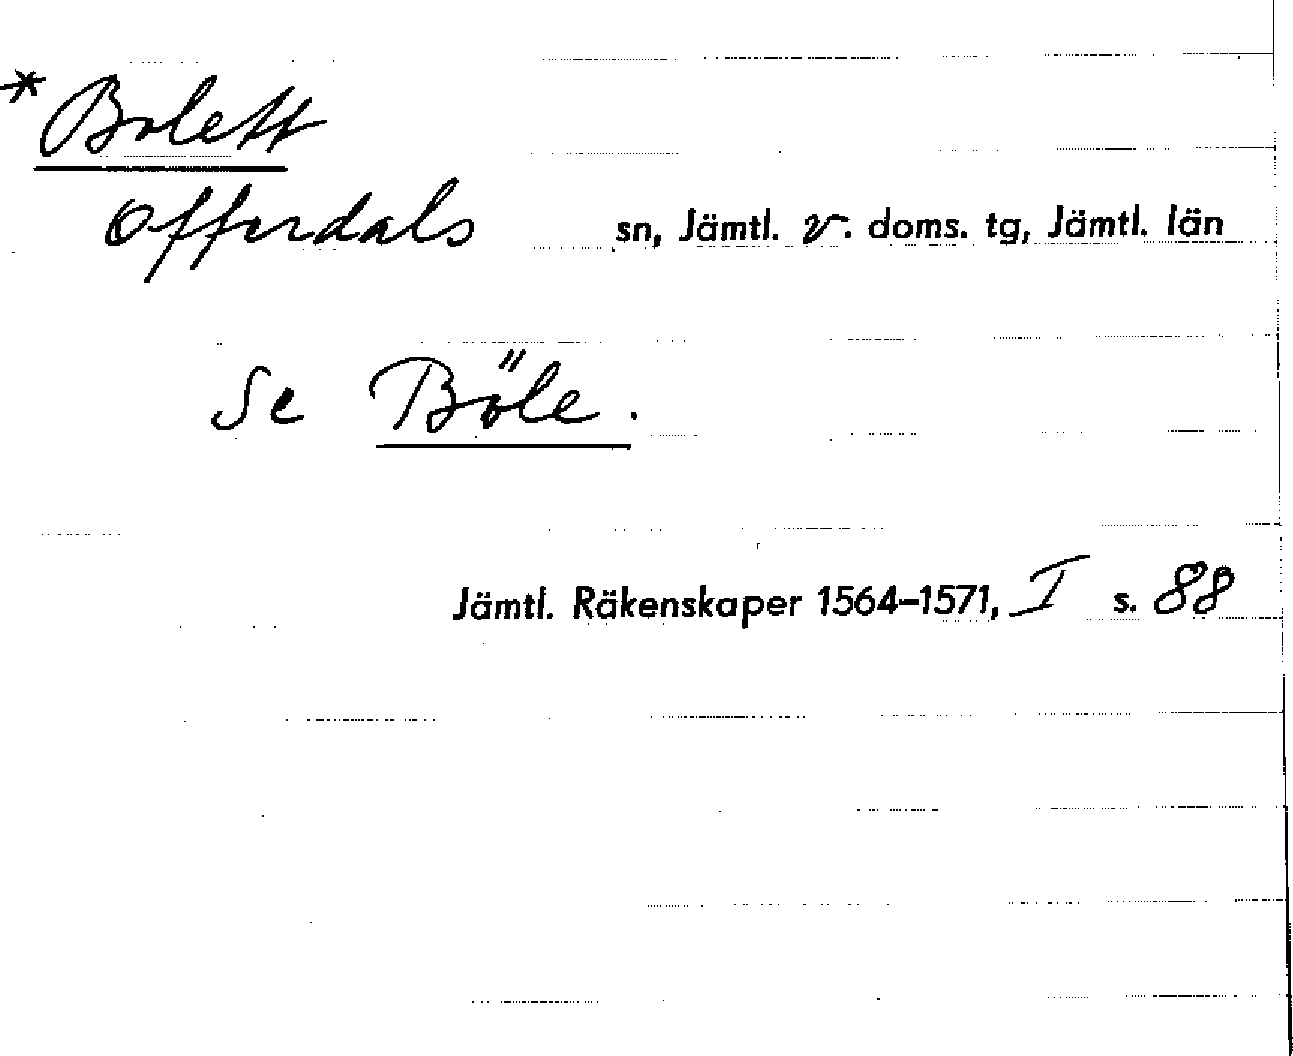 *Bolett
Offerdals sn, Jämtl. v. doms. tg, Jämtl. län
Se Böle.
Jämtl. Räkenskaper 1564–1571, I s. 88